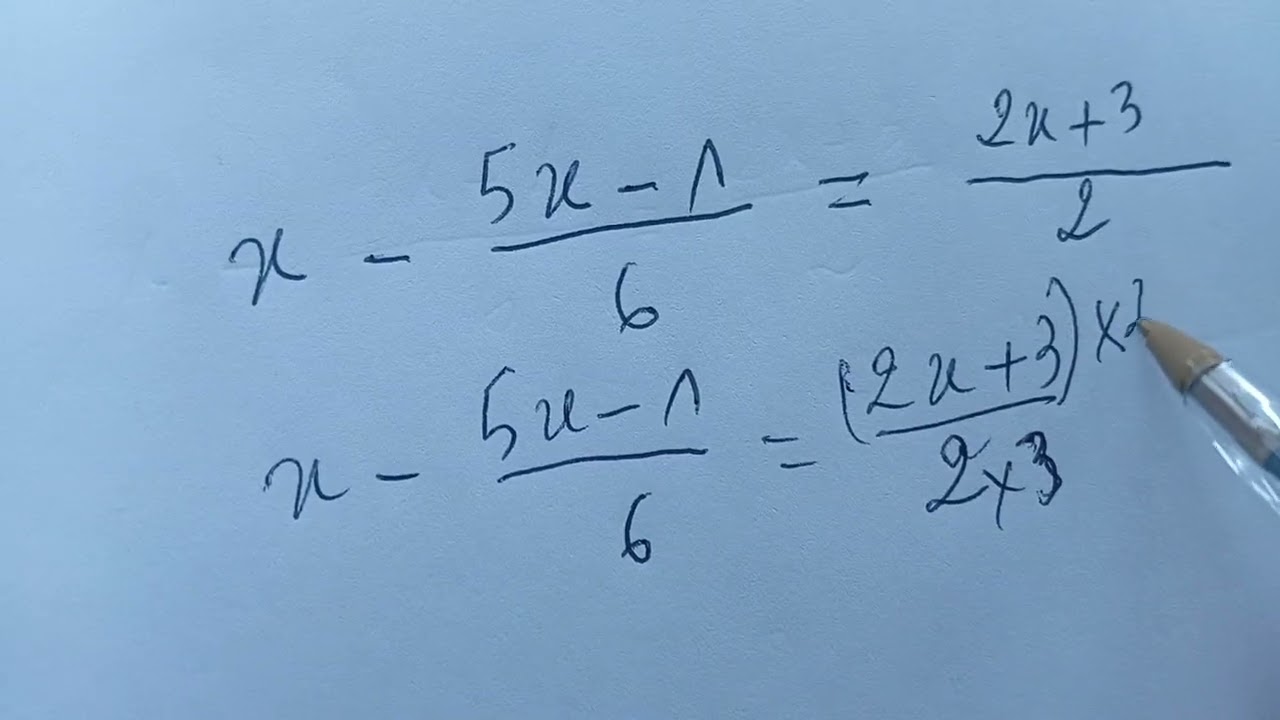 x - (5x - 1)/6 = (2x + 3)/2
x - (5x - 1)/6 = ((2x + 3) ×)/(2 × 3)